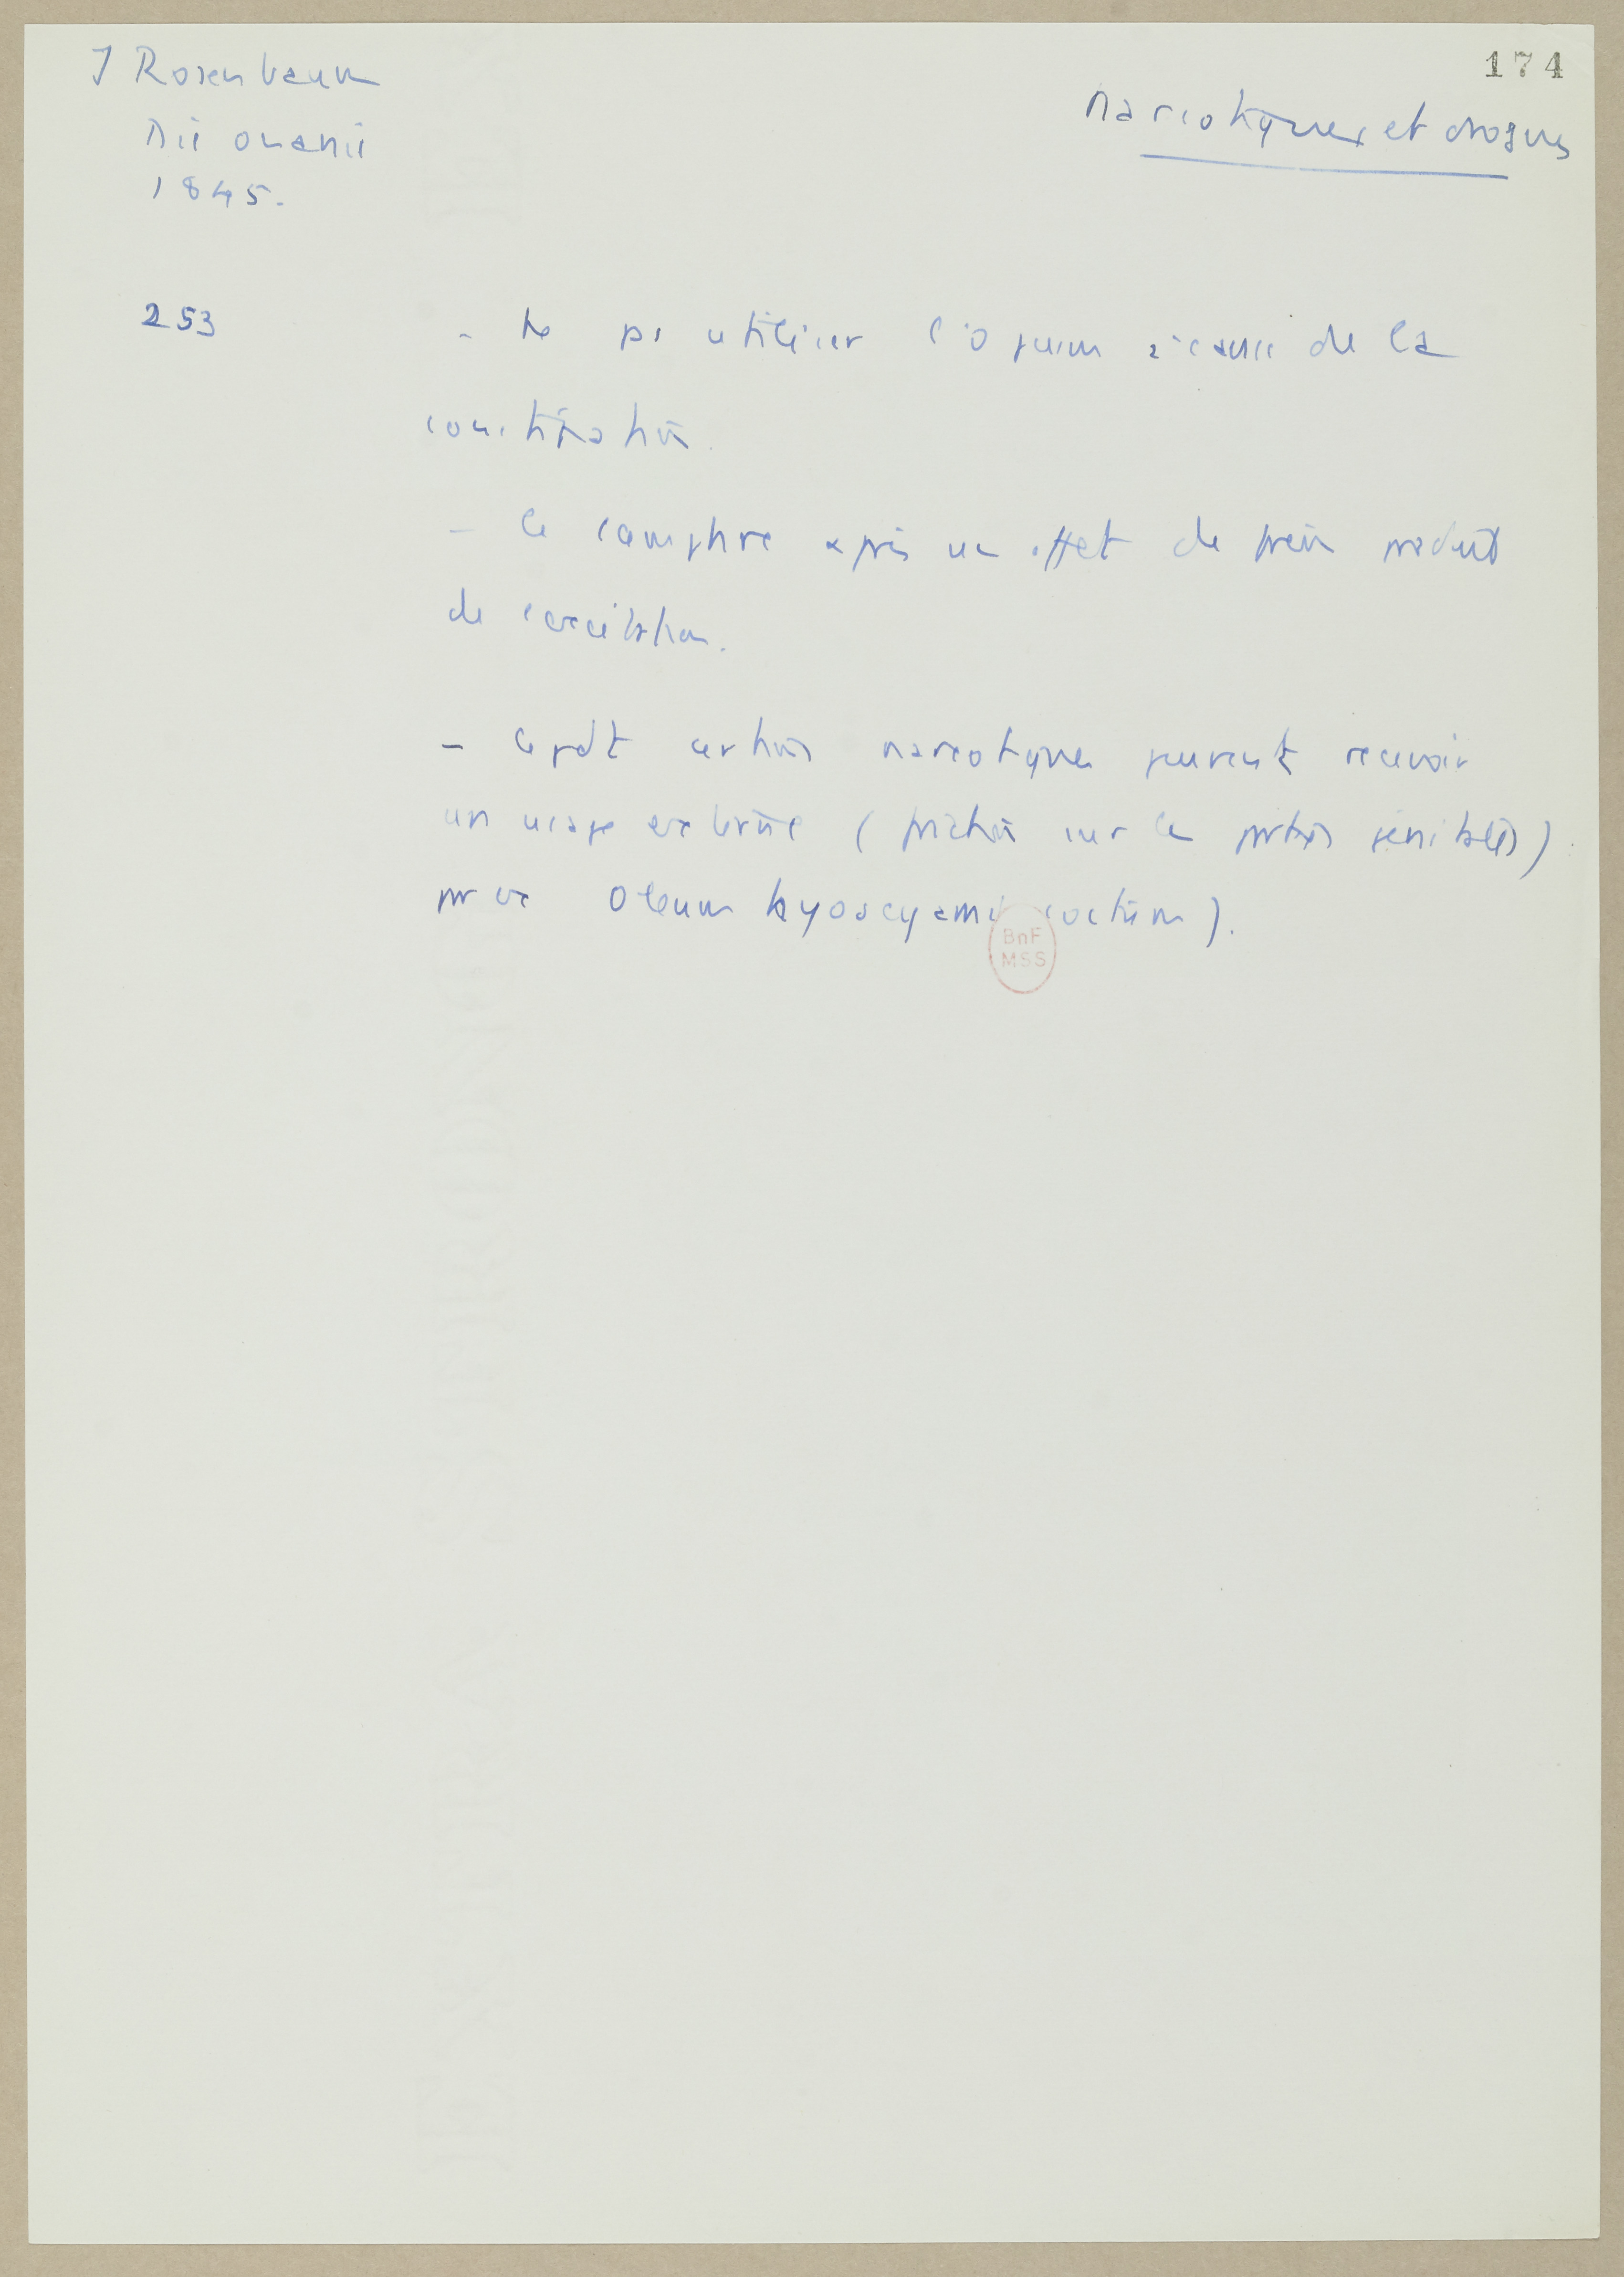 174
J Rosenbaum
Die onanie
1845.
Narcotiques et drogues
253
- Ne pas utiliser l'opium à cause de la
constipation.
- le camphre après un effet de frein produit
de l'excitation.
- Cepdt certains narcotiques peuvent recevoir
un usage externe (friction sur les parties génitales)
par ex Oleum hyoscyami coctum).
BnF
MSS